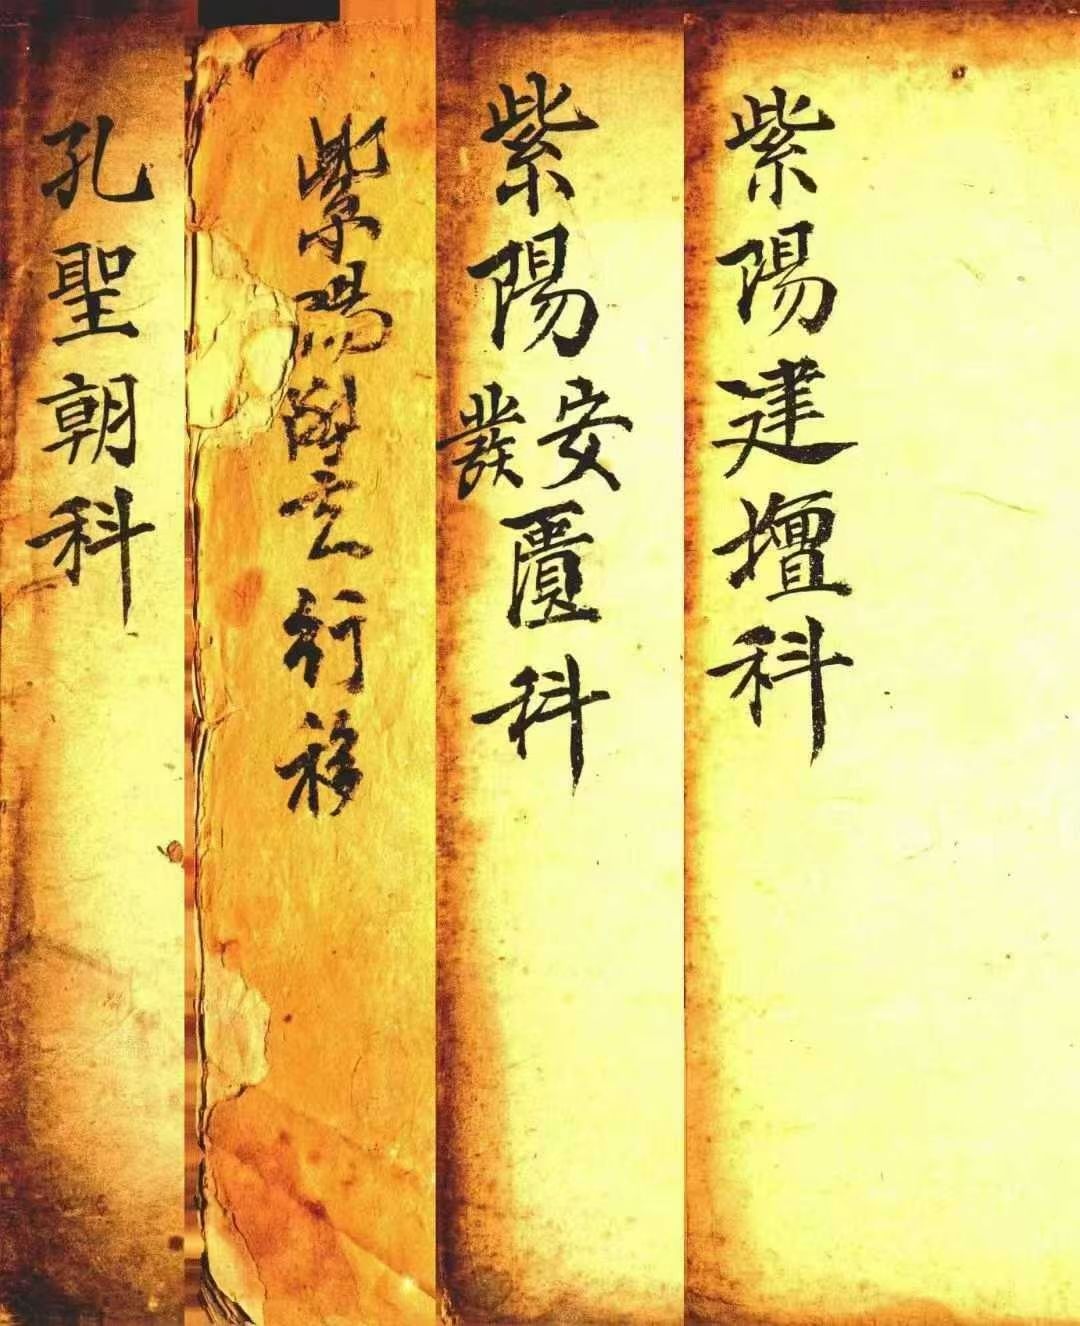 紫陽建壇科
紫陽安發匱科
紫陽行移
孔聖朝科